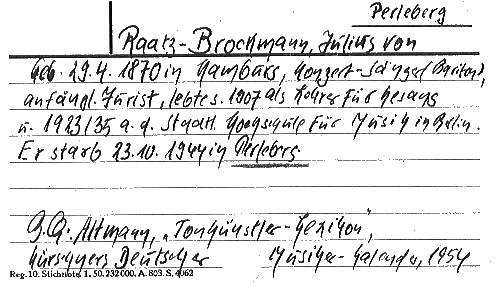 Perleberg
Raatz-Brockmann, Julius von
Geb. 29.4. 1870 in Hamburg, Konzert-Sänger (Bariton),
anfängl. Jurist, lebte s. 1907 als Lehrer für Gesang
u. 1923/35 a. d. Staatl. Hochschule für Musik in Berlin.
Er starb 23.10. 1944 in Perleberg
Altmann, „Tonkünstler-Lexikon",
Kürschners Deutscher Musiker-Kalender, 1954
Reg. 10. Stichnote. 1. 50. 232000. A. 803. S. 4062